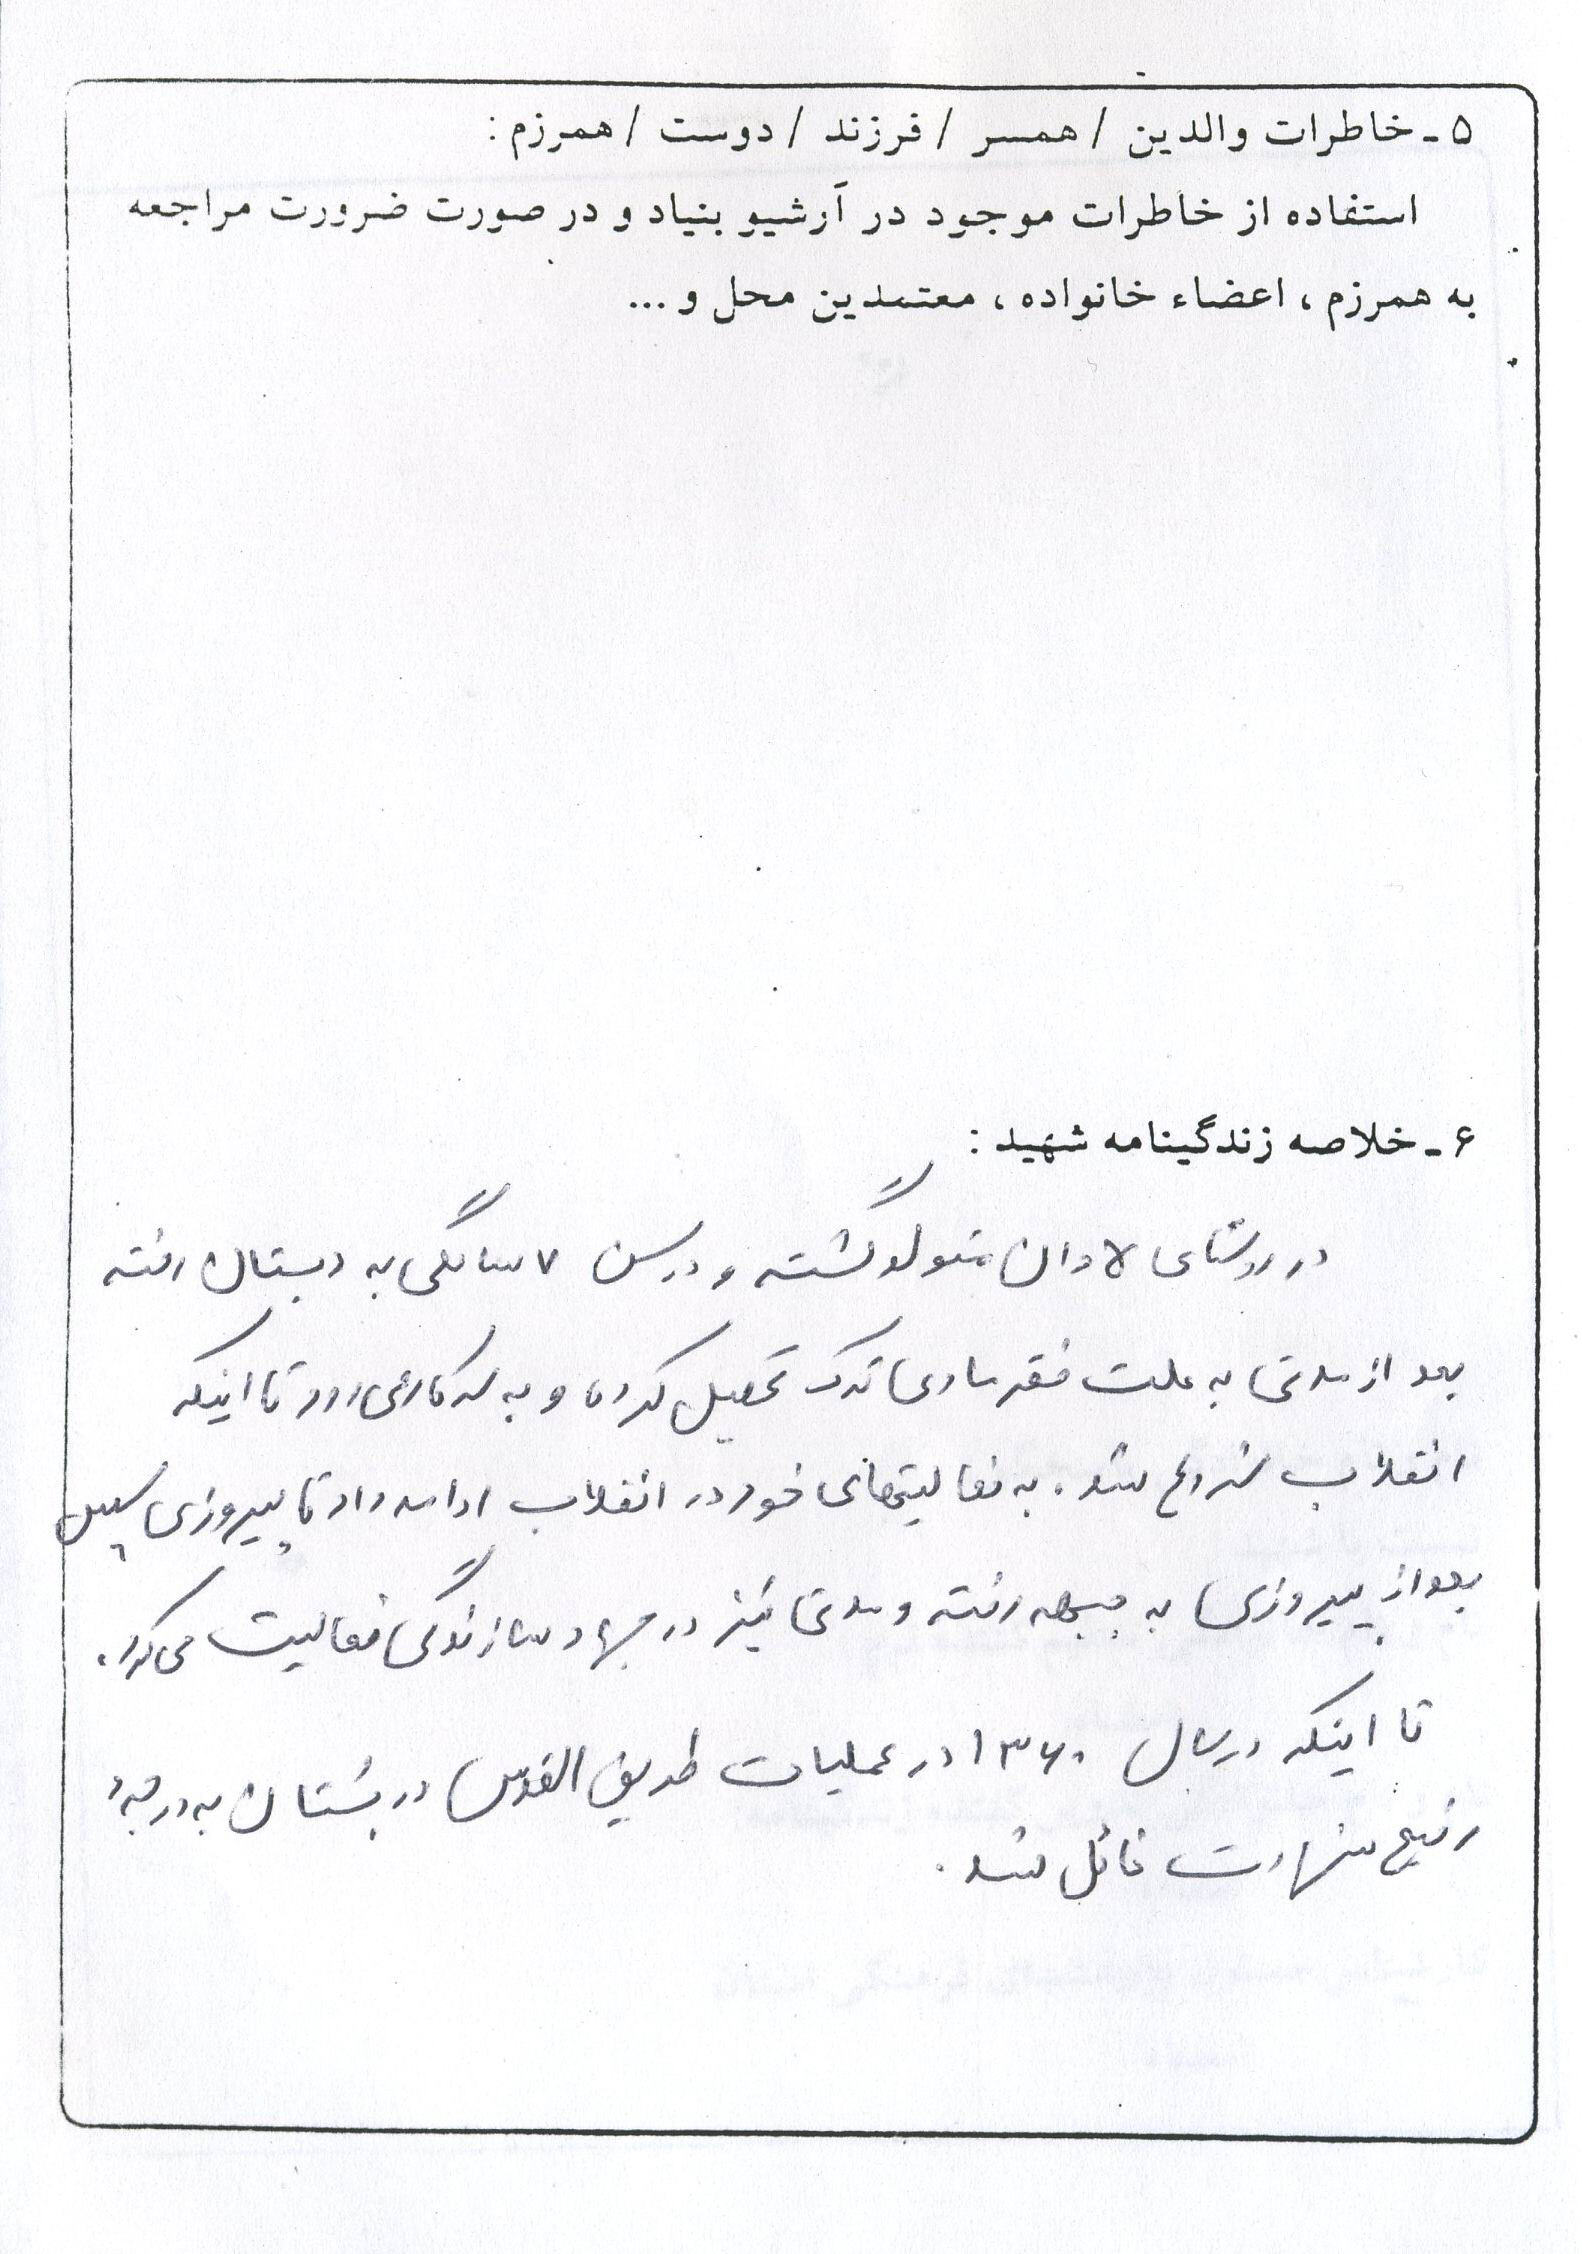 ۵ ـ خاطرات والدین / همسر / فرزند / دوست / همرزم :
استفاده از خاطرات موجود در آرشیو بنیاد و در صورت ضرورت مراجعه
به همرزم ، اعضاء خانواده ، معتمدین محل و ...
۶ ـ خلاصه زندگینامه شهید :
در روستای لاوان متولد گشته و در سن ۷ سالگی به دبستان رفته
بعد از مدتی به علت فقر مادی ترک تحصیل کرده و به سر کار می رود تا اینکه
انقلاب شروع شد . به فعالیتهای خود در انقلاب ادامه داد تا پیروزی سپس
بعد از پیروزی به جبهه رفته و مدتی نیز در جهاد سازندگی فعالیت می کرد .
تا اینکه در سال ۱۳۶۰ در عملیات طریق القدس در بستان به درجه
رفیع شهادت نائل شد .